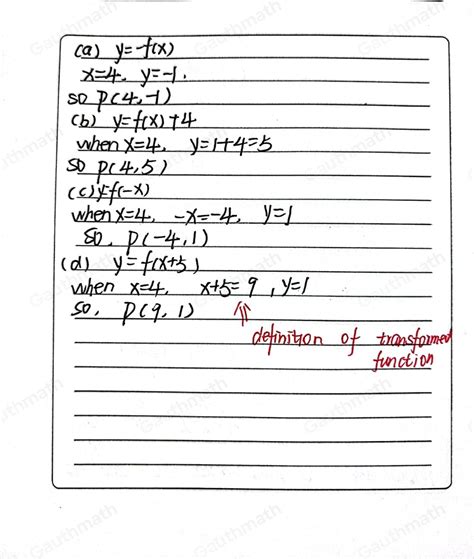 (a) y=-f(x)
x=4. y=-1.
so P(4,-1)
(b) y=f(x)+4
when x=4, y=1+4=5
So P(4,5)
(c) y=f(-x)
when x=4, -x=-4, y=1
So, P(-4,1)
(d) y=f(x+5)
when x=4, x+5=9, y=1
So, P(9,1)
definition of transformed
function